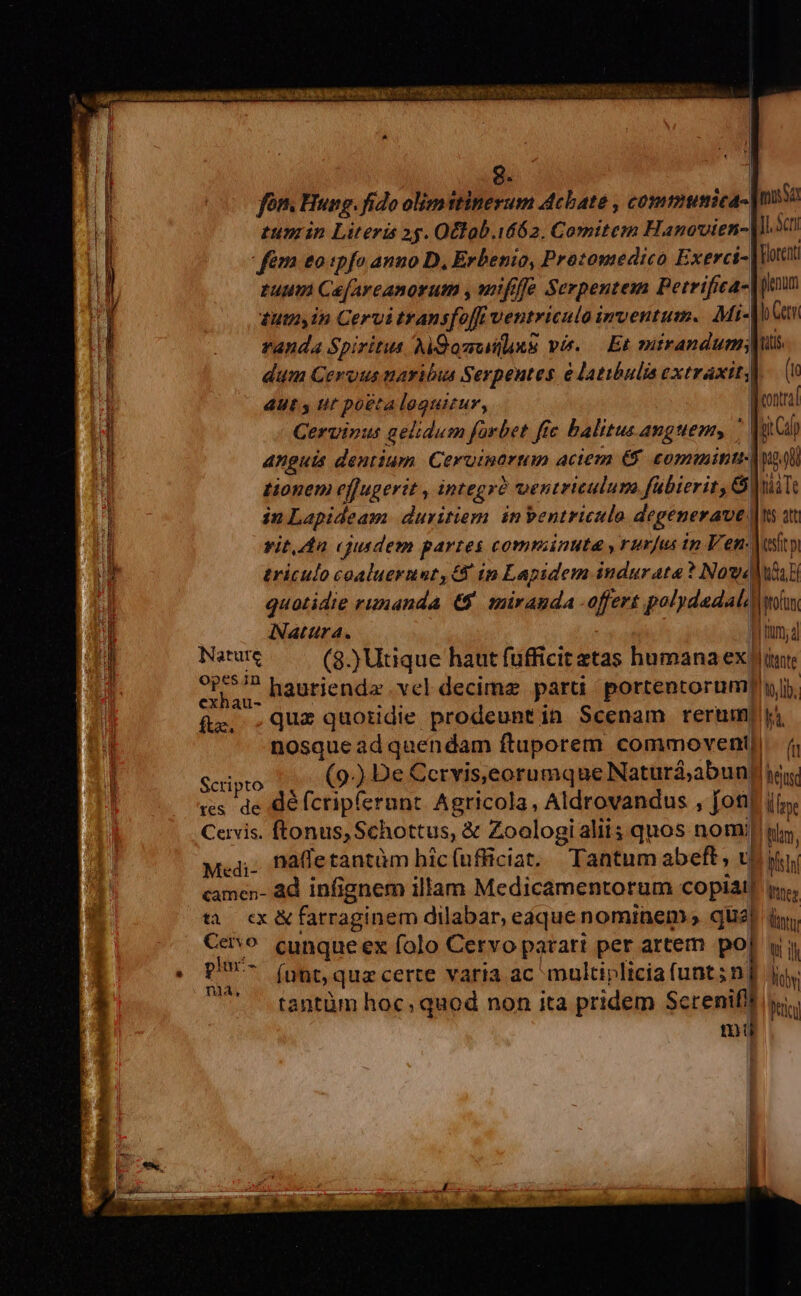 8.
ſon. Hung. fido olim itinerum Achate, communica-
tum in Literis 25. Octob. 1662. Comitem Hanovien-
ſem eo ipſo anno D. Erbenio, Protomedico Exerci-
tuum Cæſareanorum, miſiſſe Serpentem Petrifica-
tum, in Cervi transfoſſi ventriculo inventum. Mi-
randa Spiritus vis. Et mirandum,
dum Cervus naribus Serpentes è latibulis extraxit,
aut, ut poëta loquitur,
Cervinus gelidum ſorbet ſic halitus anguem,
anguis dentium Cervinorum aciem & comminu-
tionem effugerit, integrè ventriculum ſubierit, &
in Lapideam duritiem in ventriculo degenerave-
rit, An ejusdem partes comminutæ, rurſus in Ven-
triculo coaluerunt, & in Lapidem induratæ? Nova
quotidie rimanda & miranda offert polydædala
Natura.
Nature (8.) Utique haut ſufficit ætas humana ex-
opes in hauriendæ vel decimæ parti portentorum
exhau-
ſtæ. quæ quotidie prodeunt in Scenam rerum
nosque ad quendam ſtuporem commovent
Scripto (9.) De Cervis, eorumque Naturâ, abun-
res de dè ſcripſerunt Agricola, Aldrovandus, Jon-
Cervis. ſtonus, Schottus, & Zoologi alii; quos nomi-
Medi- naſſe tantùm hîc ſufficiat. Tantum abeſt, ut
camen- ad inſignem illam Medicamentorum copiam
ta ex & farraginem dilabar, eaque nominem, quæ
Cervo cunque ex ſolo Cervo parari per artem poſ
plur- ſunt, quæ certe varia ac multiplicia ſunt; n
ma, tantùm hoc, quod non ita pridem Sereniſſi
mu